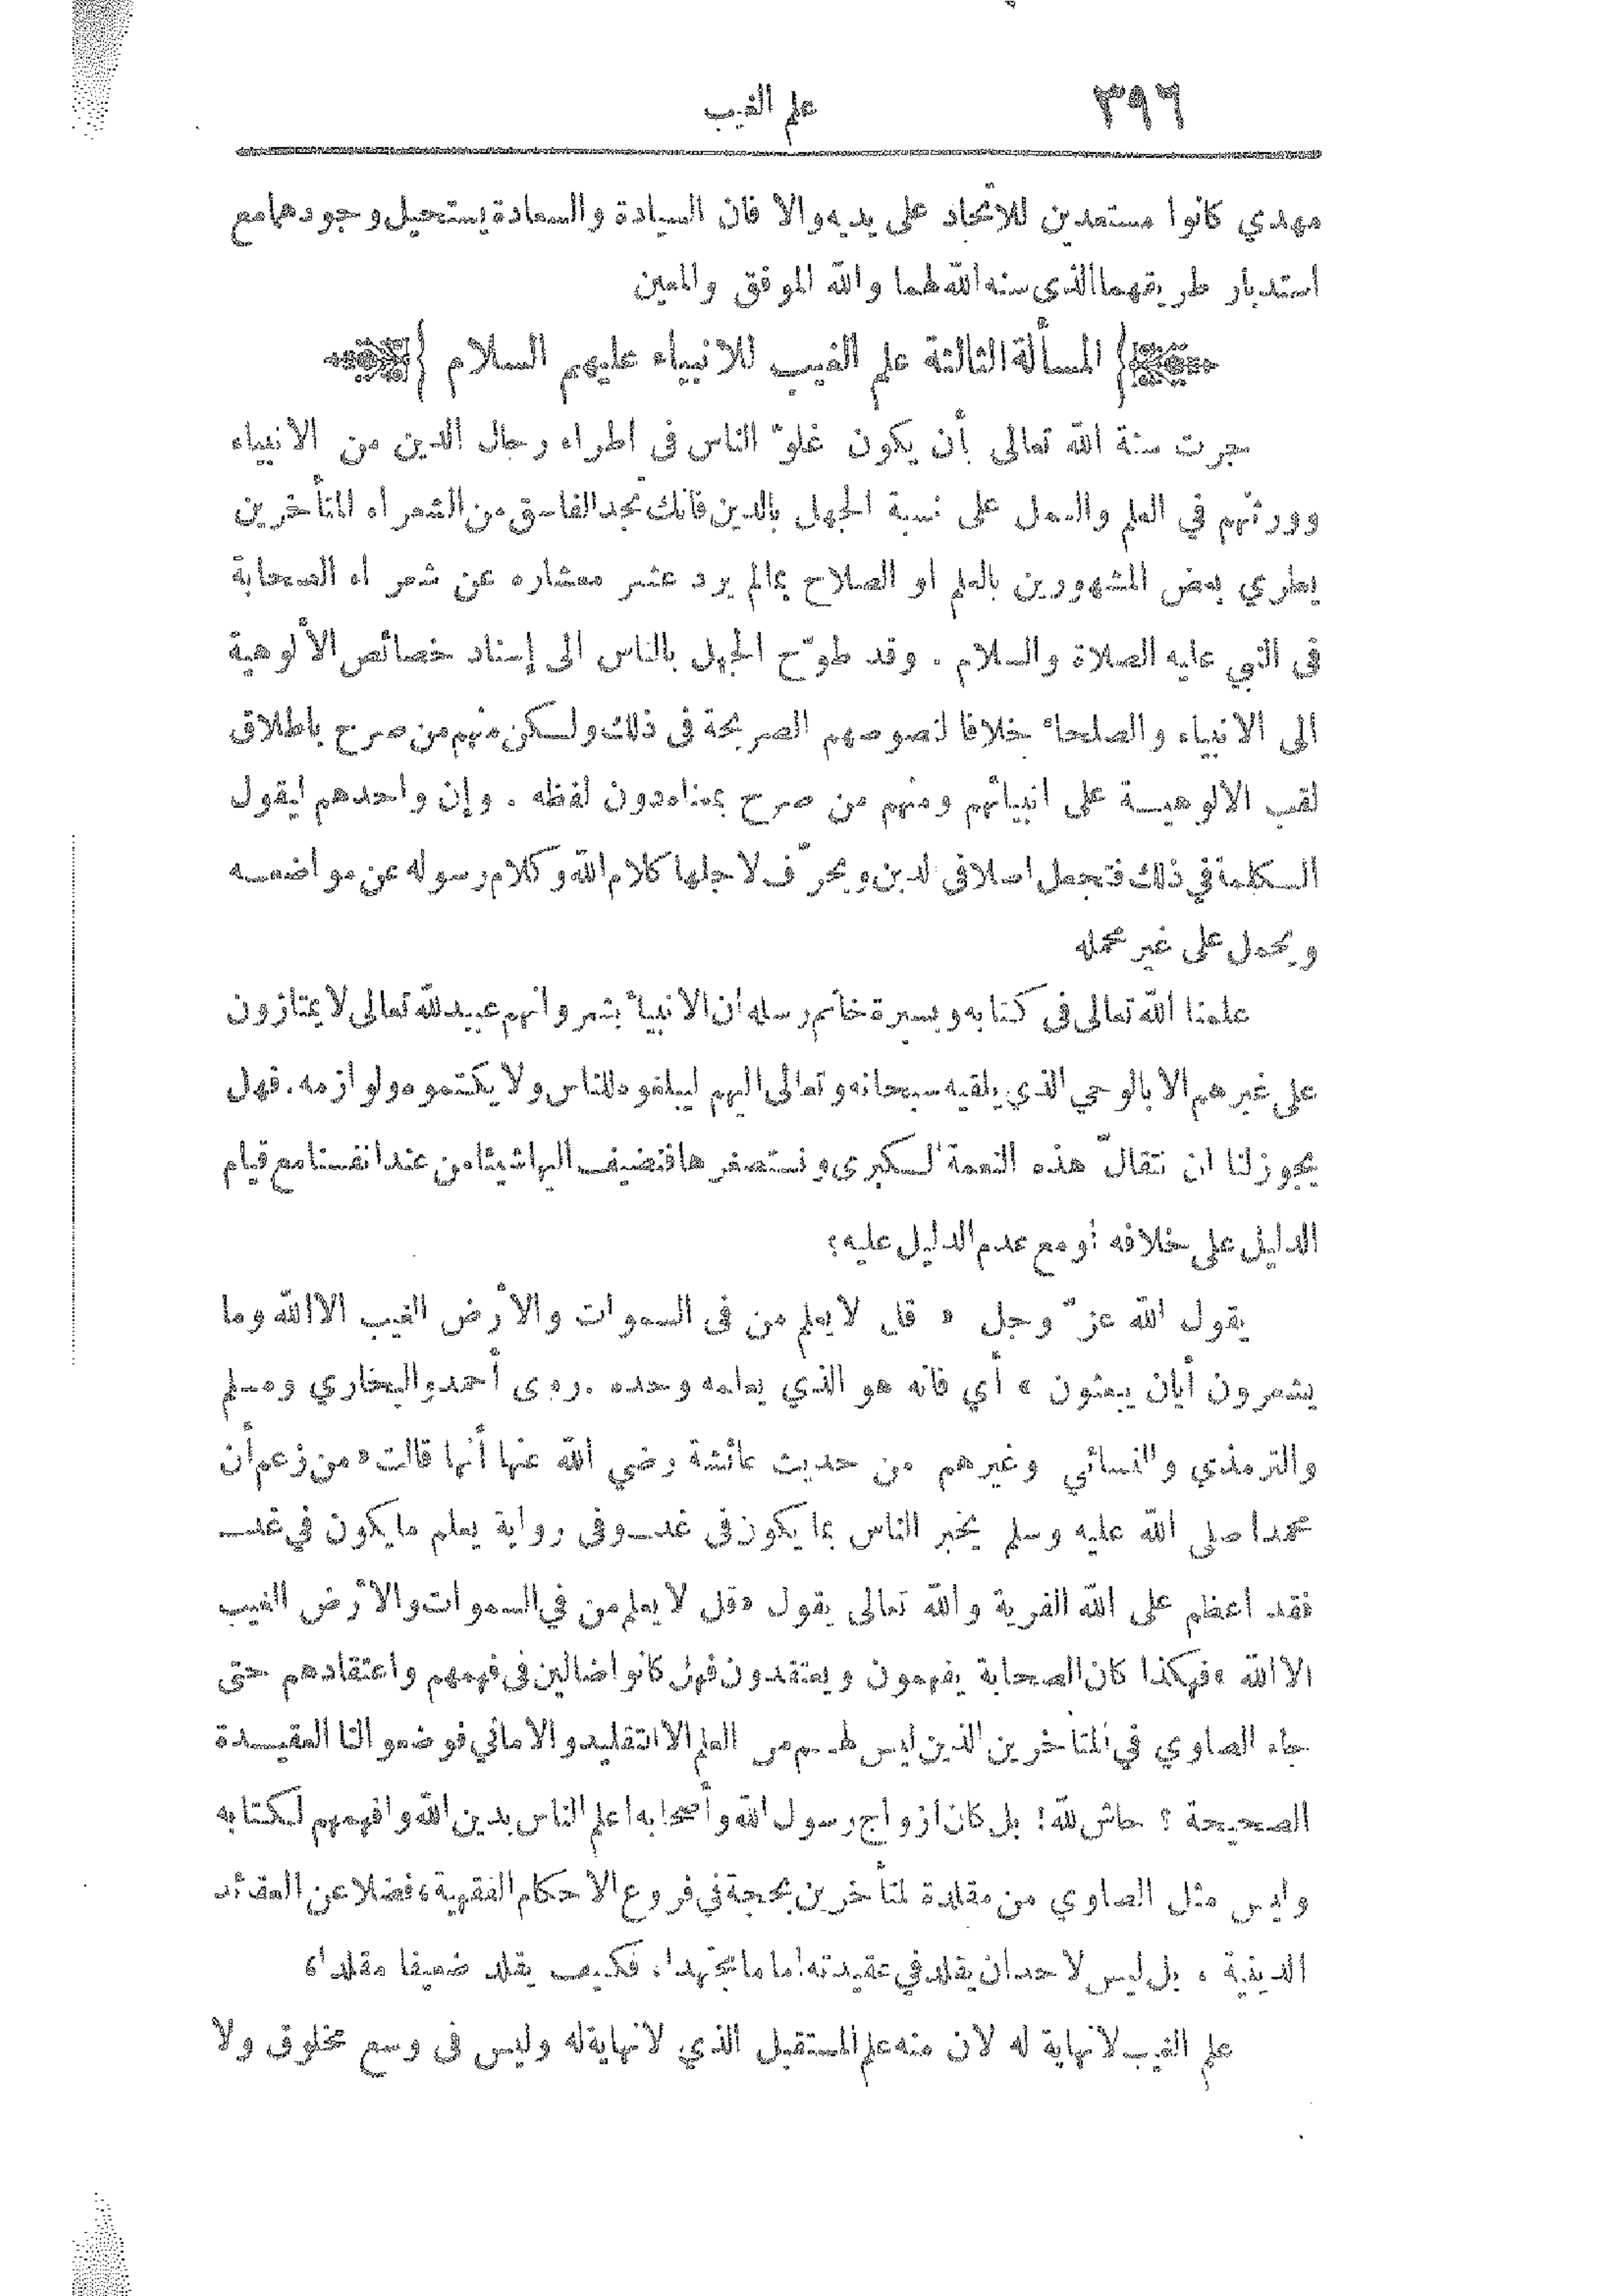 ٣٩٦
علم الغيب
مهدي كانوا مستعدين للاتحاد على يديه والا فان السيادة والسعادة يستحيل وجودهما مع
استدبار طريقهما الذى سنه الله لهما والله الموفق والمعين
﴿ المسألة الثالثة علم الغيب للانبياء عليهم السلام ﴾
جرت سنة الله تعالى بأن يكون غلوّ الناس فى اطراء رجال الدين من الانبياء
وورثتهم في العلم والعمل على نسبة الجهل بالدين فانك تجد الفاسق من الشعراء المتأخرين
يطري بعض المشهورين بالعلم او الصلاح بما لم يرد عشر معشاره عن شعراء الصحابة
فى النبي عليه الصلاة والسلام . وقد طوّح الجهل بالناس الى إسناد خصائص الألوهية
الى الانبياء والصلحاء خلافا لنصوصهم الصريحة فى ذلك ولكن منهم من صرح باطلاق
لقب الالوهية على انبيائهم ومنهم من صرح بمعناه دون لفظه . وإن واحدهم ليقول
الكلمة في ذلك فتجعل اصلا فى لدين ويحرّف لاجلها كلام الله وكلام رسوله عن مواضعه
ويحمل على غير محمله
علمنا الله تعالى فى كتابه وبسيرة خاتم رسله أن الانبياء بشر وانهم عبيد لله تعالى لا يمتازون
على غيرهم الا بالوحي الذي يلقيه سبحانه وتعالى اليهم ليبلغوه للناس ولا يكتموه ولوازمه . فهل
يجوز لنا ان نتقالّ هذه النعمة الكبرى ونستصغرها فنضيف اليها شيئا من عند انفسنا مع قيام
الدليل على خلافه أو مع عدم الدليل عليه؟
يقول الله عزّ وجل « قل لا يعلم من فى السموات والأرض الغيب الا الله وما
يشعرون أيان يبعثون » أي فانه هو الذي يعلمه وحده . روى أحمد والبخاري ومسلم
والترمذي والنسائي وغيرهم من حديث عائشة رضي الله عنها أنها قالت « من زعم أن
محمدا صلى الله عليه وسلم يخبر الناس بما يكون فى غد ــ وفى رواية يعلم ما يكون في غد ــ
فقد اعظم على الله الفرية والله تعالى يقول « قل لا يعلم من في السموات والأرض الغيب
الا الله » فهكذا كان الصحابة يفهمون ويعتقدون فهل كانوا ضالين فى فهمهم واعتقادهم حتى
جاء الصاوي في المتأخرين الذين ليس لهم من العلم الا التقليد والاماني فوضعوا لنا العقيدة
الصحيحة ؟ حاش لله! بل كان ازواج رسول الله وأصحابه اعلم الناس بدين الله وافهمهم لكتابه
وليس مثل الصاوي من مقلدة لمتأخرين بحجة في فروع الاحكام الفقهية، فضلا عن العقائد
الدينية ، بل ليس لاحد ان يقلد في عقيدته اماما مجتهدا، فكيف يقلد ضعيفا مقلدا؟
علم الغيب لا نهاية له لان منه علم المستقبل الذي لا نهاية له وليس فى وسع مخلوق ولا